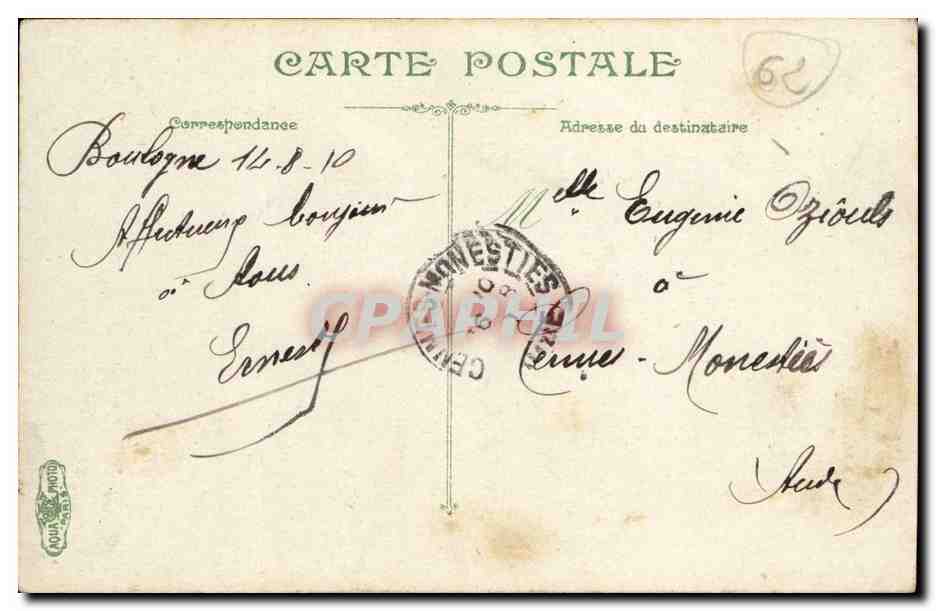 CARTE POSTALE
62
Correspondance
Adresse du destinataire
Boulogne 14-8-10
Affectueux bonjour
à tous
Ernest
Melle Eugenie Oziols
à
Cennes-Monestiès
Aude
CENNES-MONESTIES
CPAPHIL
AQUA PHOTO
PARIS